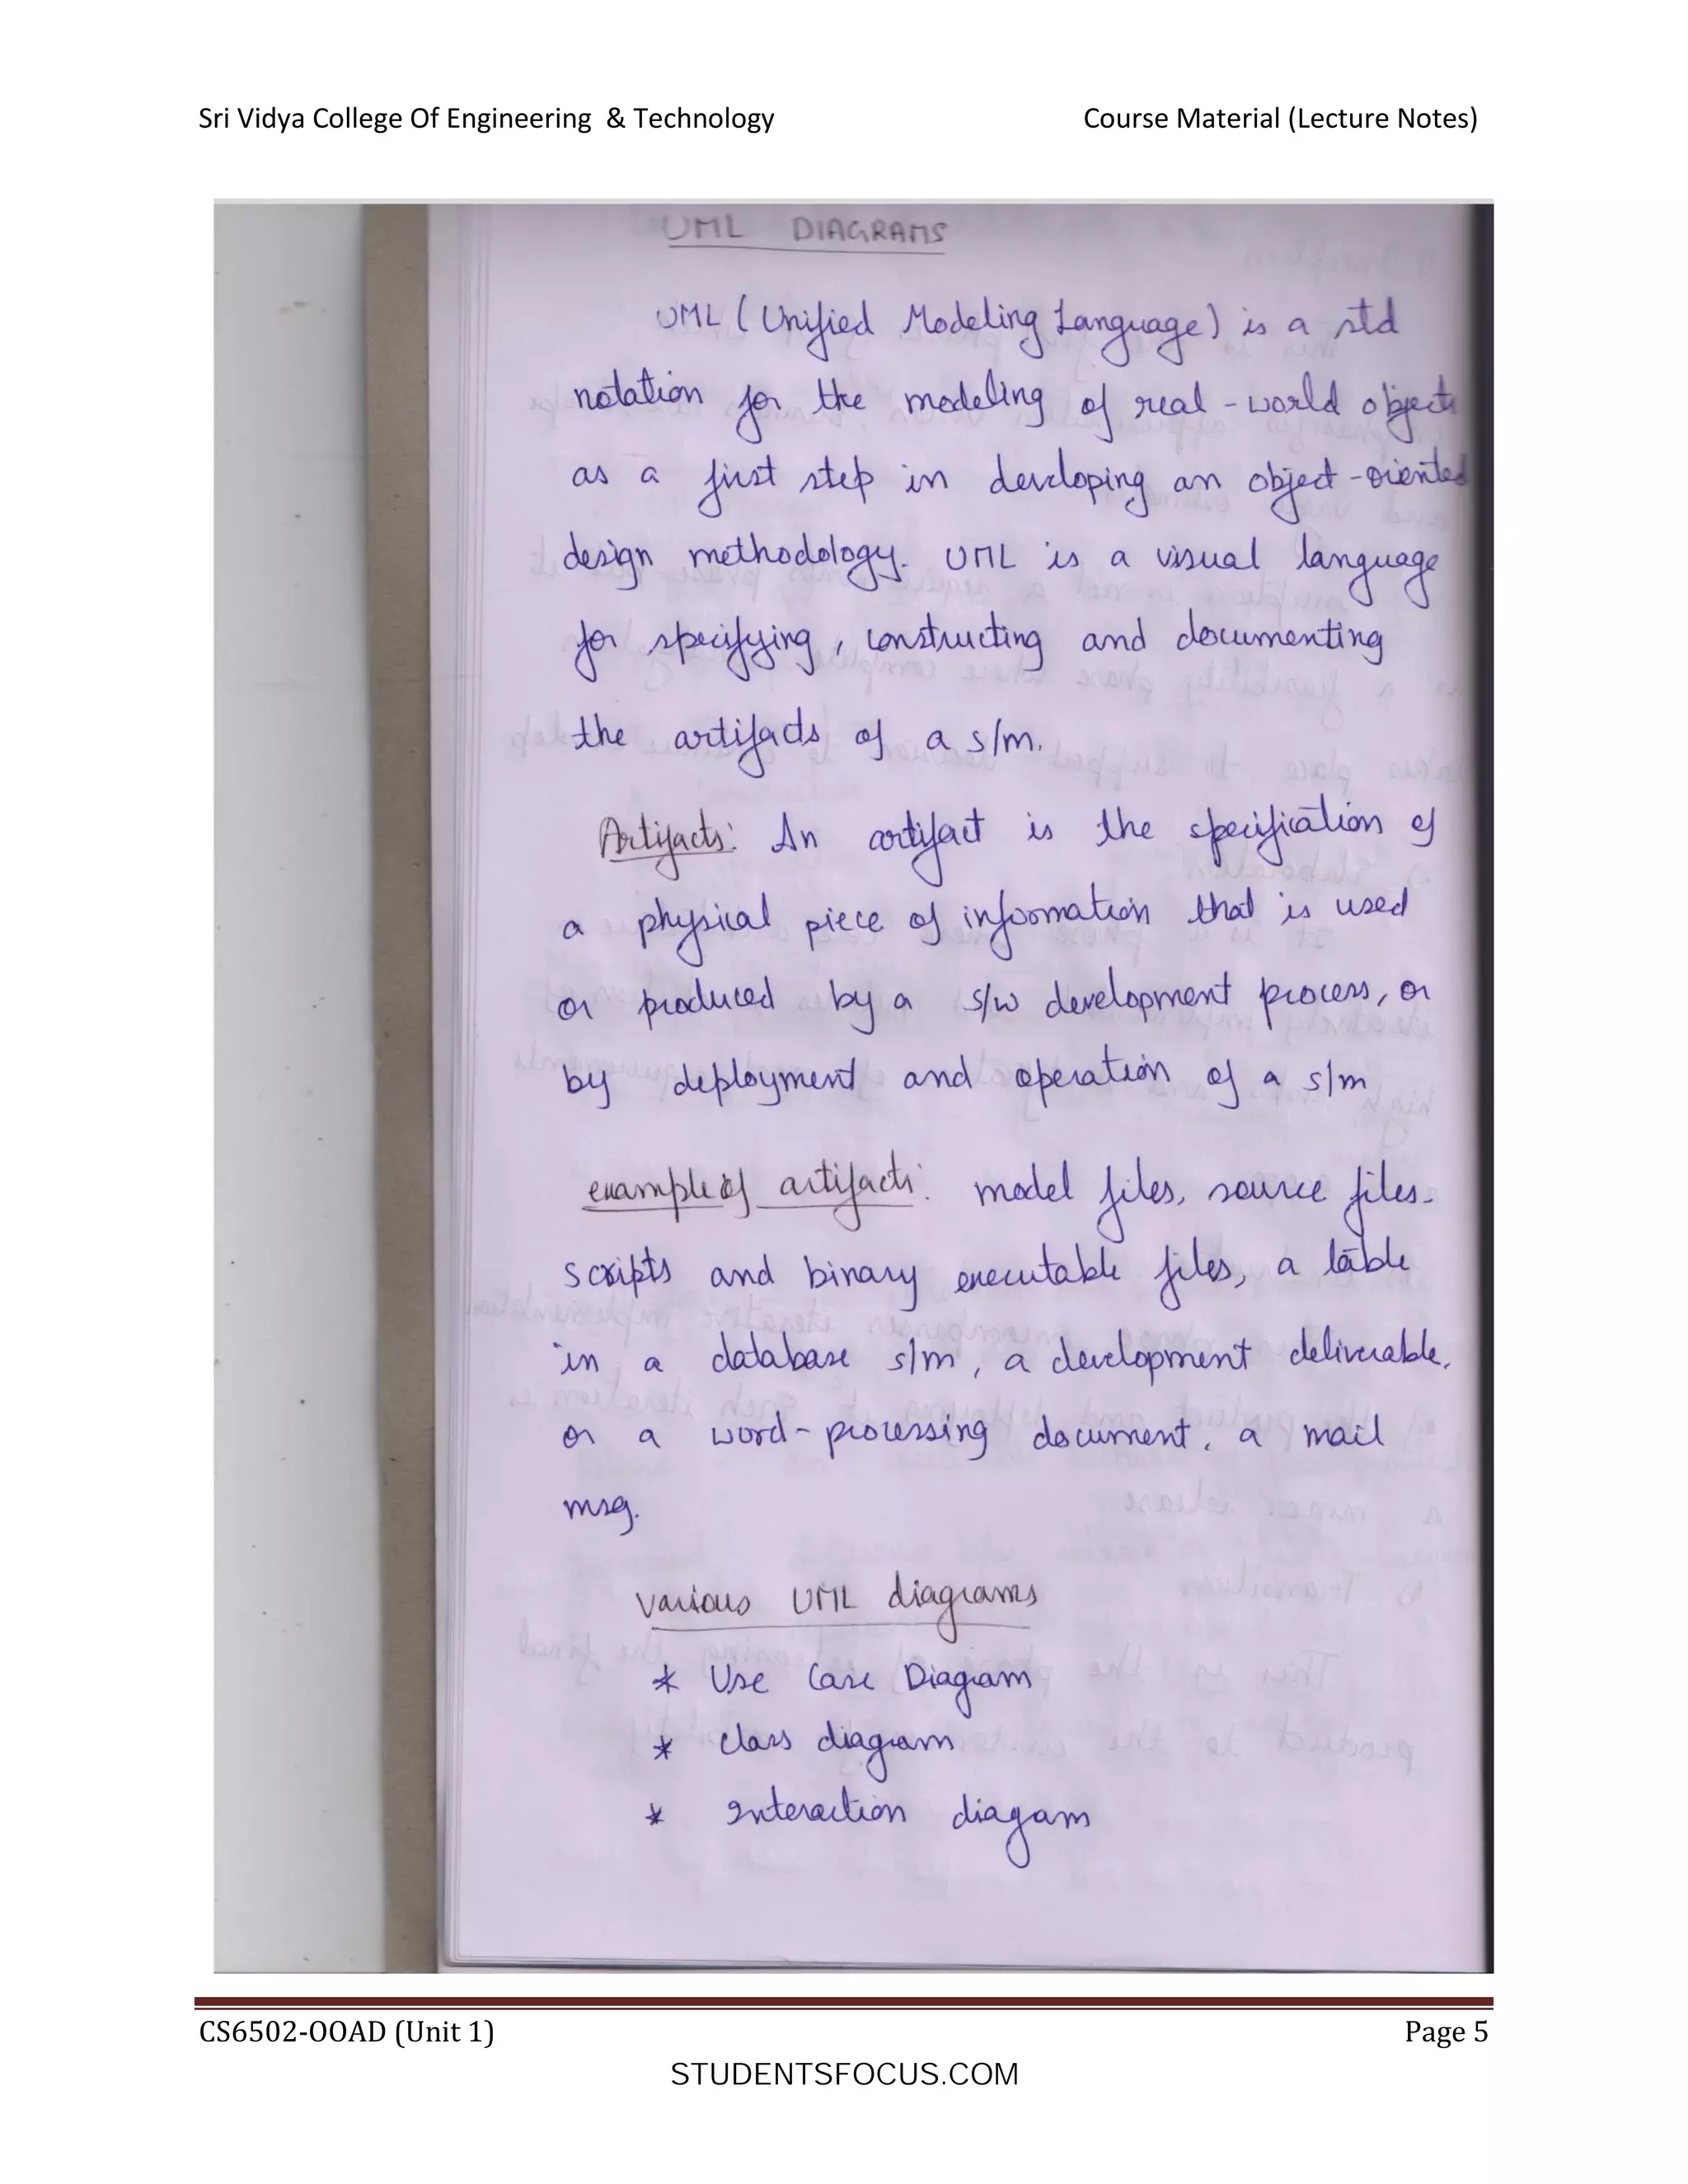 Sri Vidya College Of Engineering & Technology Course Material (Lecture Notes)
UML DIAGRAMS
UML (Unified Modeling Language) is a std
notation for the modeling of real-world objects
as a first step in developing an object-oriented
design methodology. UML is a visual language
for specifying, constructing and documenting
the artifacts of a s/m.
Artifacts: An artifact is the specification of
a physical piece of information that is used
or produced by a s/w development process, or
by deployment and operation of a s/m
example of artifacts: model files, source files.
scripts and binary executable files, a table
in a database s/m, a development deliverable,
or a word-processing document, a mail
msg.
Various UML diagrams
* Use Case Diagram
* class diagram
* Interaction diagam
CS6502-OOAD (Unit 1) Page 5
STUDENTSFOCUS.COM